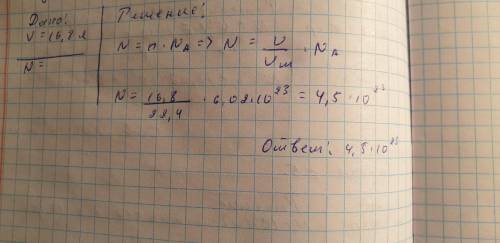 Дано:
V = 16,8 л
N =
Решение:
N = n · N_A => N = V/V_м · N_A
N = 16,8/22,4 · 6,02·10²³ = 4,5 · 10²³
Ответ: 4,5·10²³